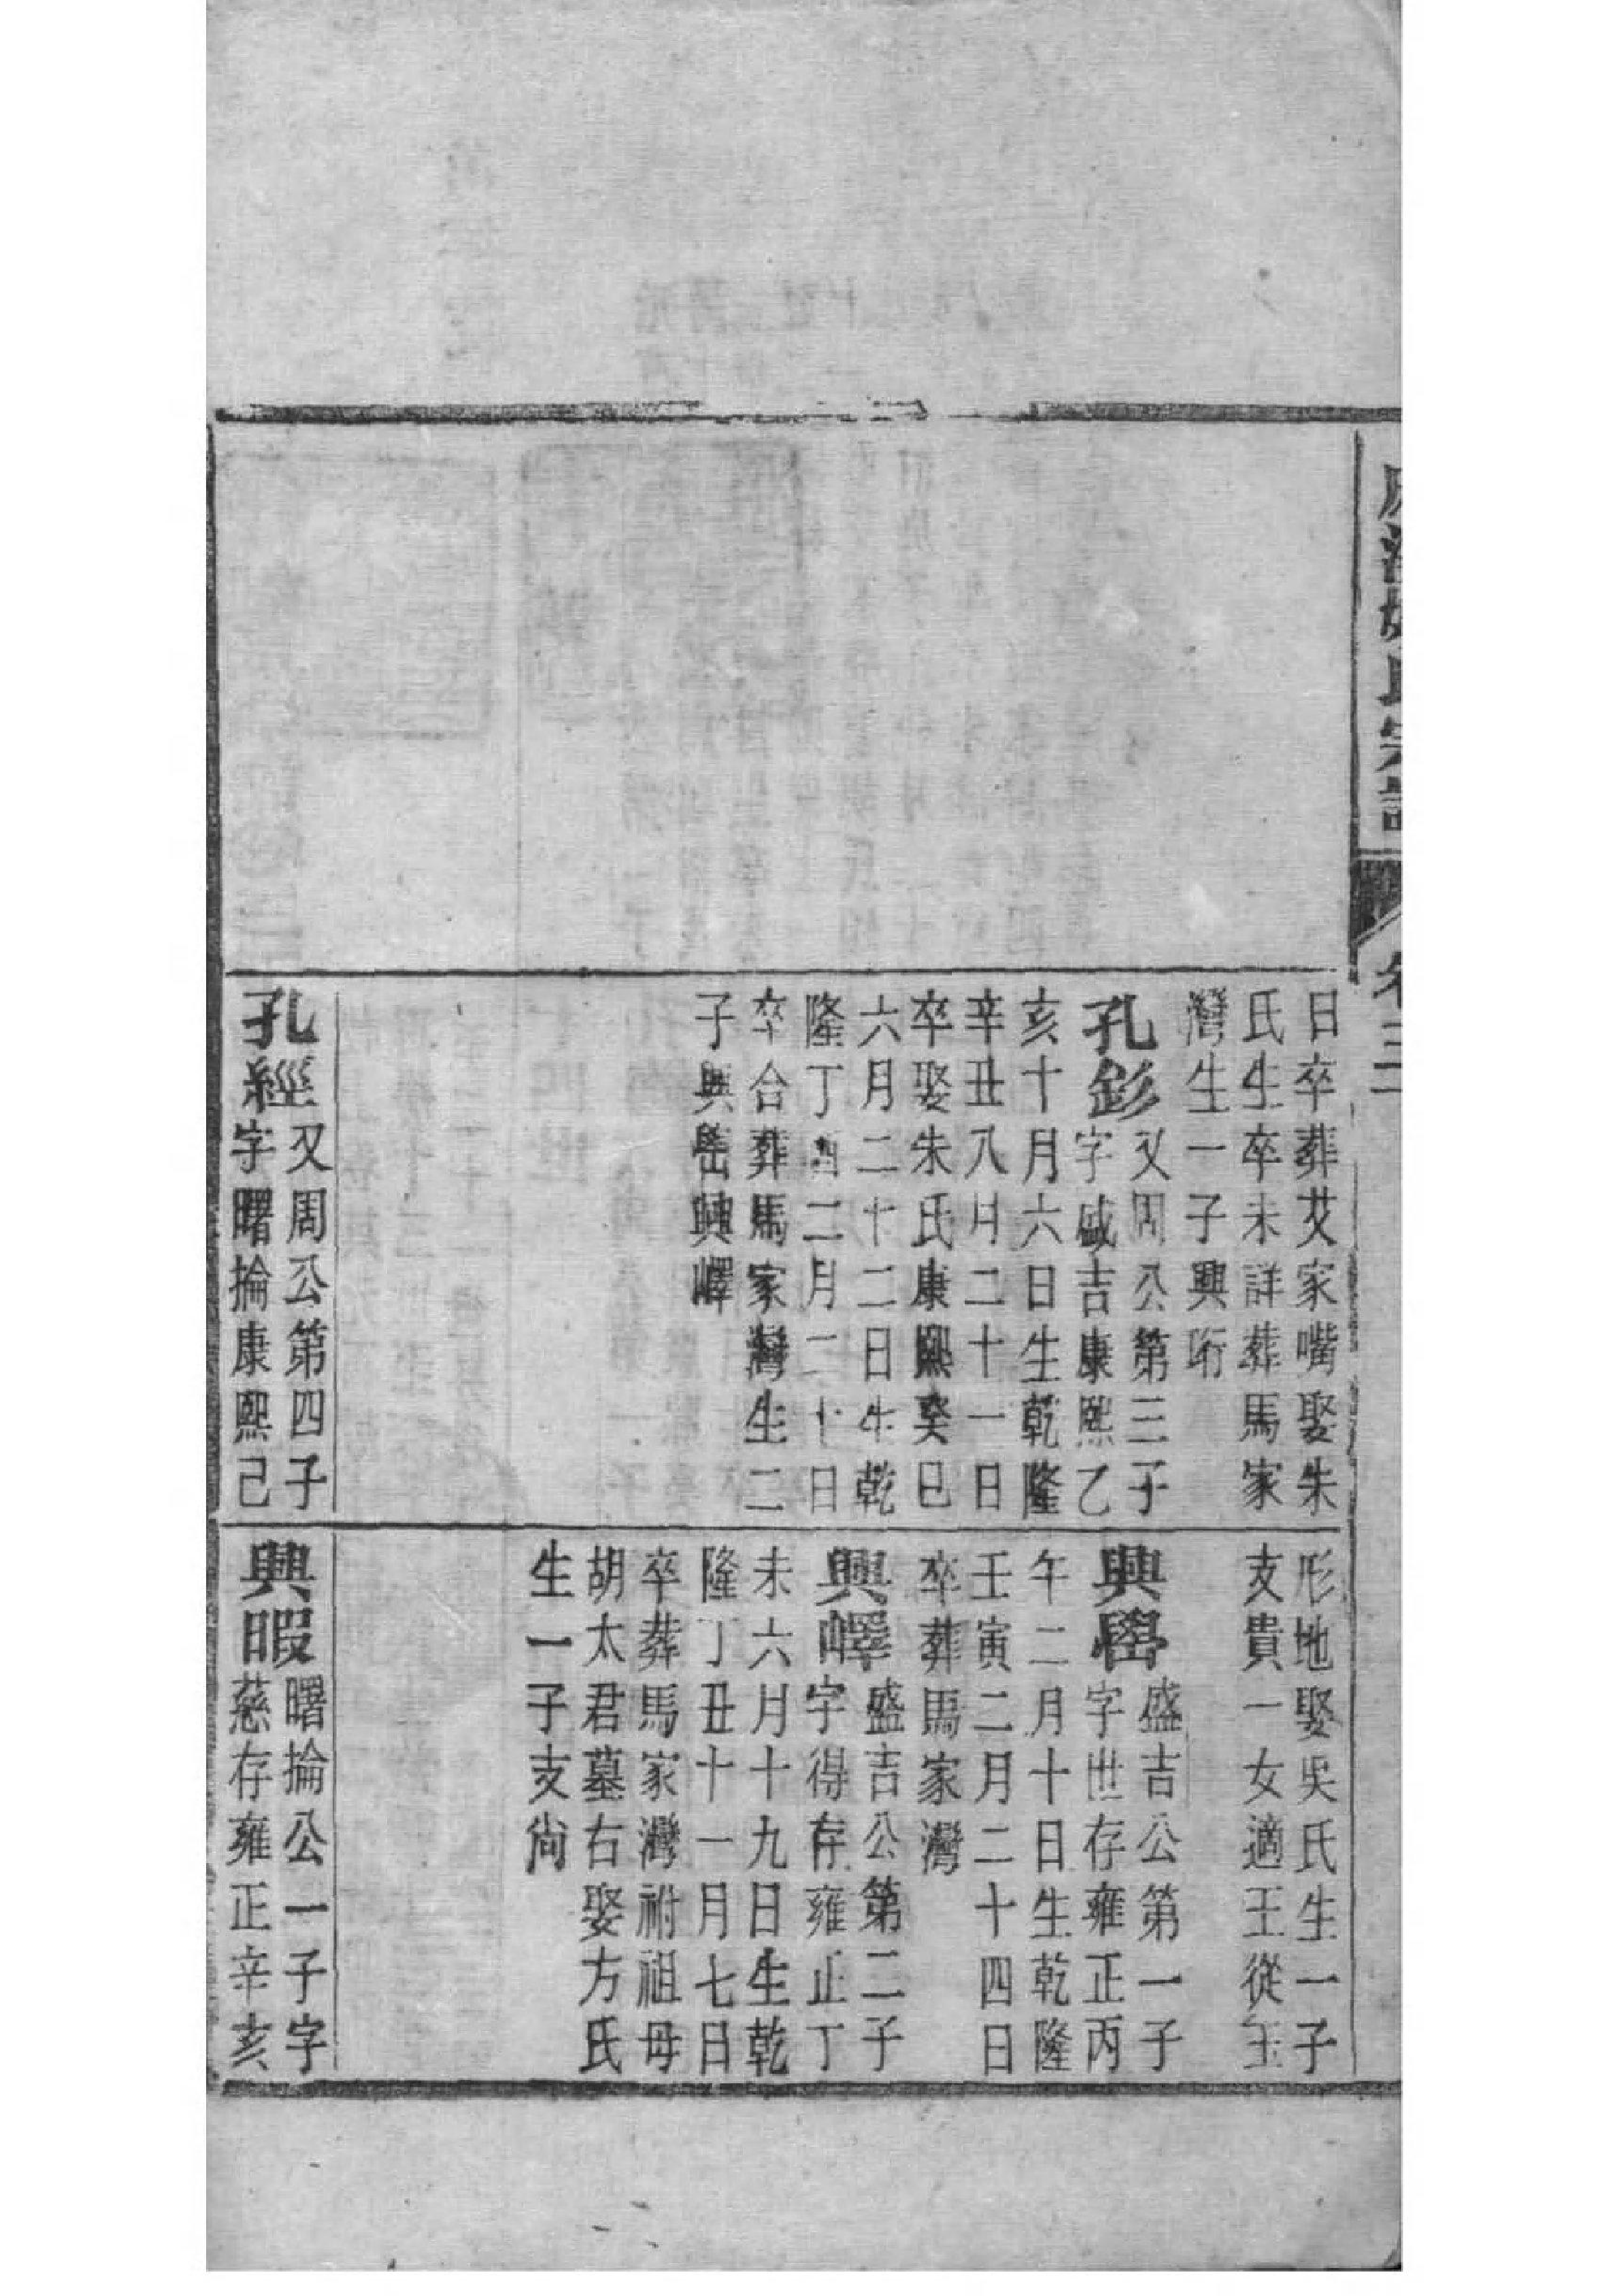 氏宗
卷三
日卒葬艾家嘴娶朱
氏生卒未詳葬馬家
灣生一子興珩
孔彭又周公第三子
字盛吉康熙乙
亥十月六日生乾隆
辛丑八月二十一日
卒娶朱氏康熙癸巳
六月二十二日生乾
隆丁酉二月二十日
卒合葬馬家灣生二
子興嶨興嶧
孔經又周公第四子
字曙掄康熙己
形地娶吳氏生一子
支貴一女適王從玉
興嶨盛吉公第一子
字世存雍正丙
午二月十日生乾隆
壬寅二月二十四日
卒葬馬家灣
興嶧盛吉公第二子
字得存雍正丁
未六月十九日生乾
隆丁丑十一月七日
卒葬馬家灣祔祖母
胡太君墓右娶方氏
生一子支尚
興暇曙掄公一子字
慈存雍正辛亥